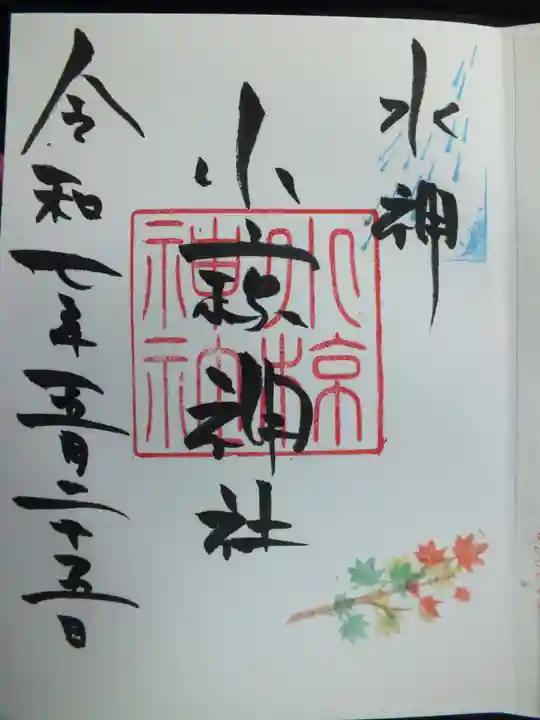 水神
小椋神社
小椋神社
令和七年五月二十五日